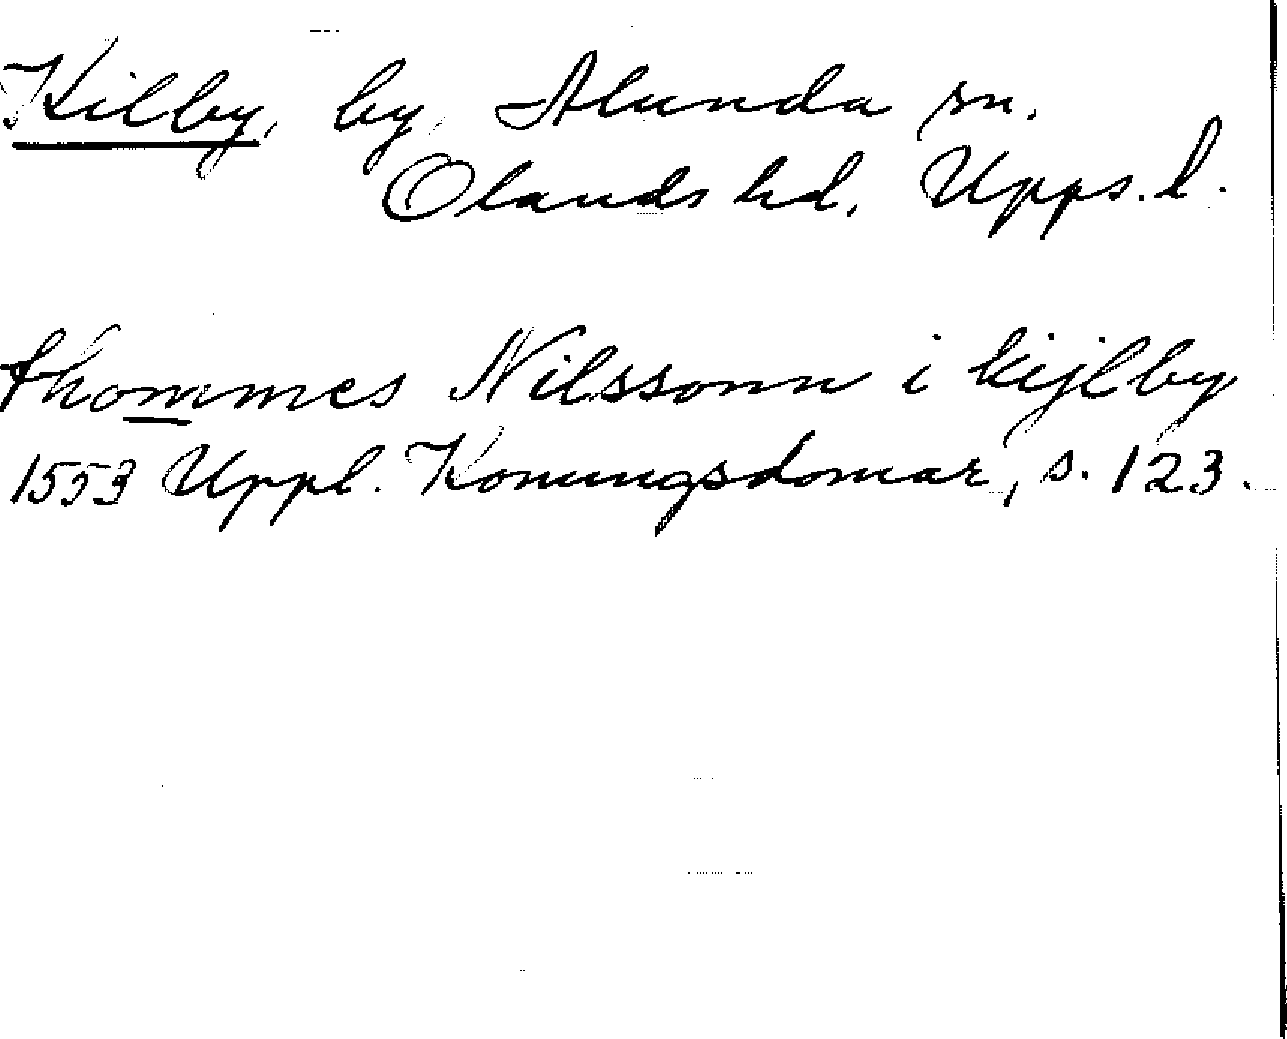 Kilby, by, Alunda sn.
Olands hd, Upps. l.
thommes Nilssonn i kijlby
1553 Uppl. Konungsdomar, s. 123.